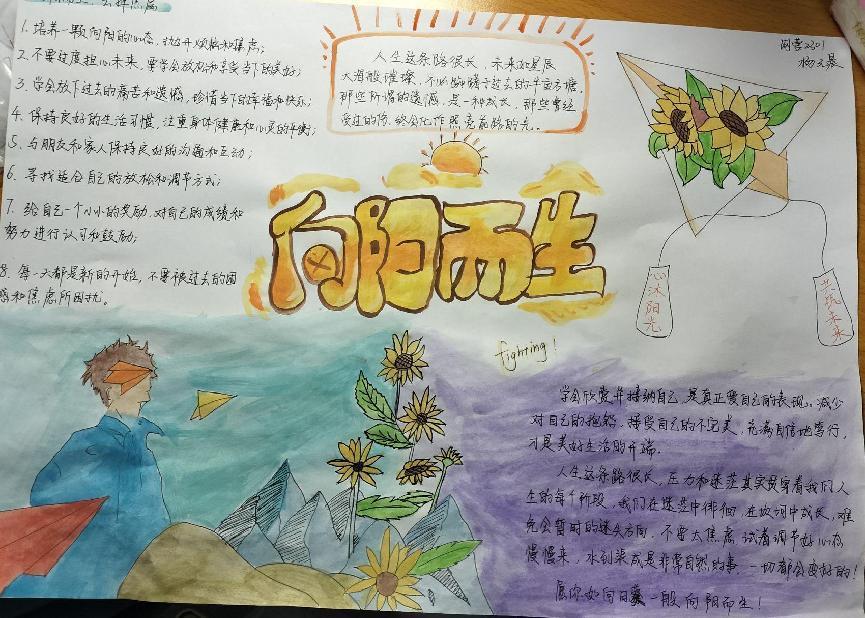 1. 培养一颗向阳的心态，抛开烦恼和焦虑；
2. 不要过度担心未来，要学会放松和享受当下的美好；
3. 学会放下过去的痛苦和遗憾，珍惜当下的幸福和快乐；
4. 保持良好的生活习惯，注重身体健康和心灵的平衡；
5. 与朋友和家人保持良好的沟通和互动；
6. 寻找适合自己的放松和调节方式；
7. 给自己一个小小的奖励，对自己的成绩和
努力进行认可和鼓励；
8. 每一天都是新的开始，不要被过去的困
惑和焦虑所困扰。
人生这条路很长，未来如星辰
大海般璀璨，不必踟蹰于过去的半亩方塘。
那些所谓的遗憾，是一种成长，那些曾经
受过的伤，终会化作照亮前路的光。
2301
向阳而生
心沐阳光
未来
fighting!
学会欣赏并接纳自己，是真正爱自己的表现。减少
对自己的抱怨，接受自己的不完美，充满自信地笃行，
才是美好生活的开端。
人生这条路很长，压力和迷茫其实贯穿着我们人
生的每个阶段，我们在迷茫中徘徊，在坎坷中成长，难
免会暂时的迷失方向，不要太焦虑，试着调节好心态
慢慢来，水到渠成是非常自然的事，一切都会变好的！
愿你如向日葵一般向阳而生！